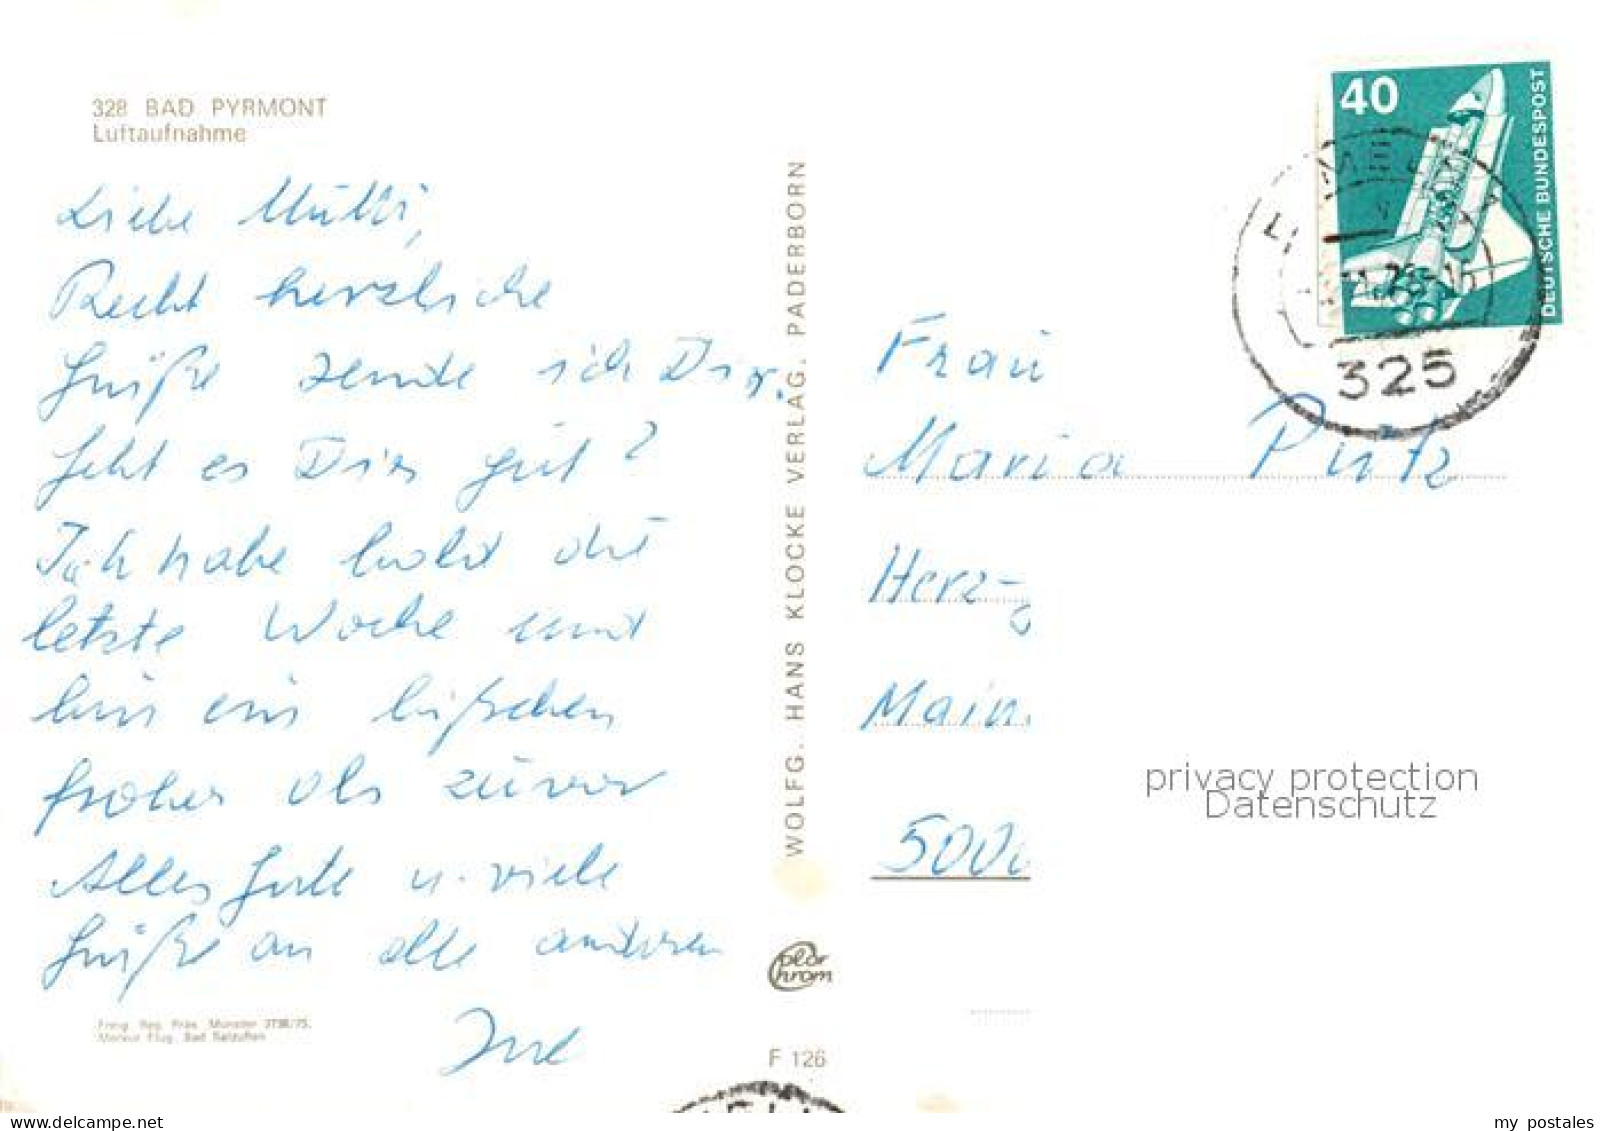 328 BAD PYRMONT
Luftaufnahme
Liebe Mutti,
Recht herzliche
Grüße sende ich Dir.
Geht es Dir gut?
Ich habe bald die
letzte Woche und
bin ein bißchen
froher als zuvor
Alles Gute u. viele
Grüße an alle anderen
Freig. Reg. Präs. Münster 3738/75.
Merkur Flug, Bad Salzuflen
WOLFG. HANS KLOCKE VERLAG, PADERBORN
Color
Chrom
F 126
40
DEUTSCHE BUNDESPOST
325
Frau
Maria Putz
Herz-
Main
5000
privacy protection
Datenschutz
my postales